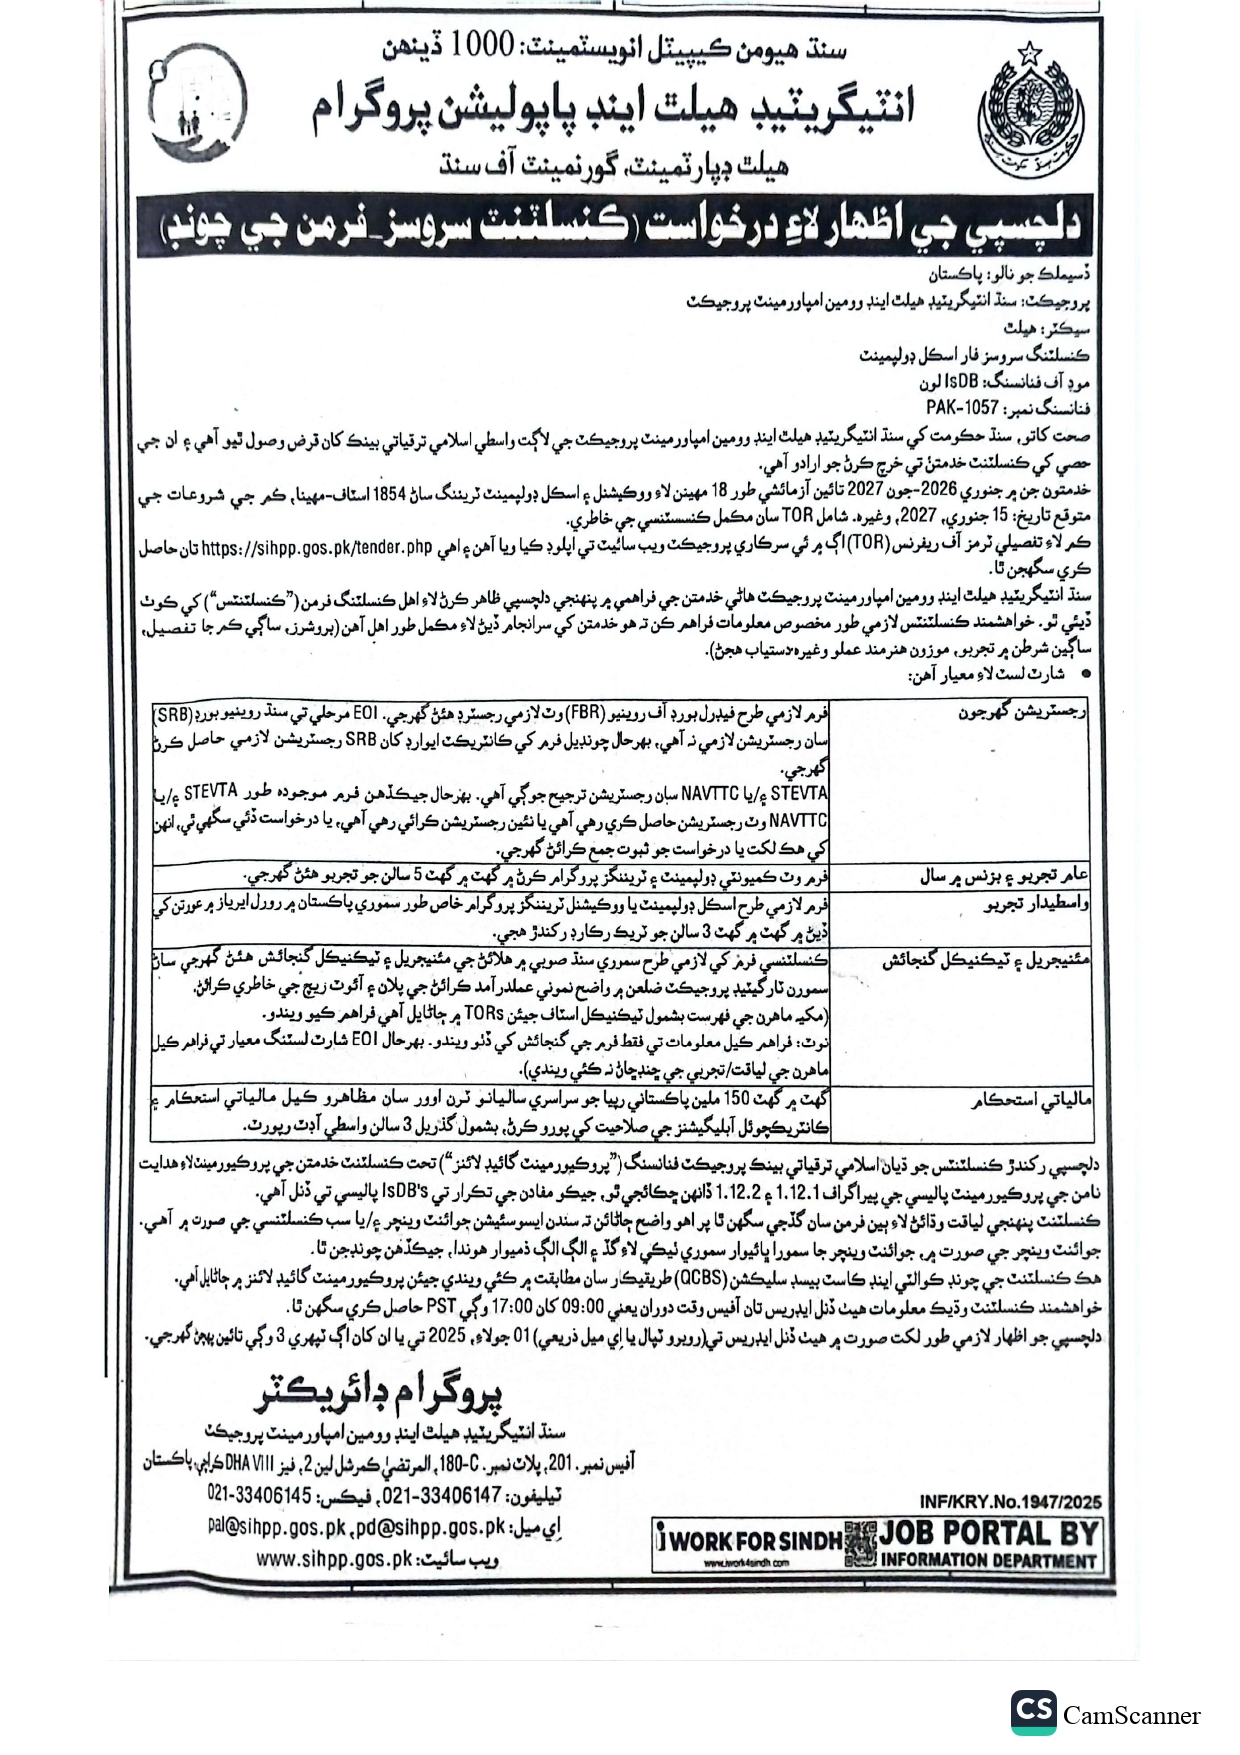 سنڌ هيومن ڪيپيٽل انويسٽمينٽ: 1000 ڏينهن
انٽيگريٽيڊ هيلٿ اينڊ پاپوليشن پروگرام
هيلٿ ڊپارٽمينٽ، گورنمينٽ آف سنڌ
دلچسپي جي اظهار لاءِ درخواست (ڪنسلٽنٽ سروسز_فرمن جي چونڊ)
ڏسيملڪ جو نالو: پاڪستان
پروجيڪٽ: سنڌ انٽيگريٽيڊ هيلٿ اينڊ وومين امپاورمينٽ پروجيڪٽ
سيڪٽر: هيلٿ
ڪنسلٽنگ سروسز فار اسڪل ڊولپمينٽ
موڊ آف فنانسنگ: IsDB لون
فنانسنگ نمبر: PAK-1057
صحت کاتو، سنڌ حڪومت کي سنڌ انٽيگريٽيڊ هيلٿ اينڊ وومين امپاورمينٽ پروجيڪٽ جي لاڳت واسطي اسلامي ترقياتي بينڪ کان قرض وصول ٿيو آهي ۽ ان جي
حصي کي ڪنسلٽنٽ خدمتن تي خرچ ڪرڻ جو ارادو آهي.
خدمتون جن ۾ جنوري 2026-جون 2027 تائين آزمائشي طور 18 مهينن لاءِ ووڪيشنل ۽ اسڪل ڊولپمينٽ ٽريننگ سان 1854 اسٽاف-مهينا، ڪم جي شروعات جي
متوقع تاريخ: 15 جنوري، 2027، وغيره. شامل TOR سان مڪمل ڪنسسٽنسي جي خاطري.
ڪم لاءِ تفصيلي ٽرمز آف ريفرنس (TOR) اڳ ۾ ئي سرڪاري پروجيڪٽ ويب سائيٽ تي اپلوڊ ڪيا ويا آهن ۽ اهي https://sihpp.gos.pk/tender.php تان حاصل
ڪري سگهجن ٿا.
سنڌ انٽيگريٽيڊ هيلٿ اينڊ وومين امپاورمينٽ پروجيڪٽ هاڻي خدمتن جي فراهمي ۾ پنهنجي دلچسپي ظاهر ڪرڻ لاءِ اهل ڪنسلٽنگ فرمن ("ڪنسلٽنٽس") کي ڪوٺ
ڏيئي ٿو. خواهشمند ڪنسلٽنٽس لازمي طور مخصوص معلومات فراهم ڪن ته هو خدمتن کي سرانجام ڏيڻ لاءِ مڪمل طور اهل آهن (بروشرز، ساڳي ڪم جا تفصيل،
ساڳين شرطن ۾ تجربو، موزون هنرمند عملو وغيره دستياب هجڻ).
• شارٽ لسٽ لاءِ معيار آهن:
رجسٽريشن گهرجون
فرم لازمي طرح فيڊرل بورڊ آف روينيو (FBR) وٽ لازمي رجسٽرڊ هئڻ گهرجي. EOI مرحلي تي سنڌ روينيو بورڊ (SRB)
سان رجسٽريشن لازمي نه آهي، بهرحال چونڊيل فرم کي ڪانٽريڪٽ ايوارڊ کان SRB رجسٽريشن لازمي حاصل ڪرڻ
گهرجي.
STEVTA ۽/يا NAVTTC سان رجسٽريشن ترجيح جوڳي آهي. بهرحال جيڪڏهن فرم موجوده طور STEVTA ۽/يا
NAVTTC وٽ رجسٽريشن حاصل ڪري رهي آهي يا نئين رجسٽريشن ڪرائي رهي آهي، يا درخواست ڏئي سگهي ٿي، انهن
کي هڪ لکت يا درخواست جو ثبوت جمع ڪرائڻ گهرجي.
عام تجربو ۽ بزنس ۾ سال
فرم وٽ ڪميونٽي ڊولپمينٽ ۽ ٽريننگز پروگرام ڪرڻ ۾ گهٽ ۾ گهٽ 5 سالن جو تجربو هئڻ گهرجي.
واسطيدار تجربو
فرم لازمي طرح اسڪل ڊولپمينٽ يا ووڪيشنل ٽريننگز پروگرام خاص طور سموري پاڪستان ۾ رورل ايرياز ۾ عورتن کي
ڏيڻ ۾ گهٽ ۾ گهٽ 3 سالن جو ٽريڪ رڪارڊ رکندڙ هجي.
مئنيجريل ۽ ٽيڪنيڪل گنجائش
ڪنسلٽنسي فرم کي لازمي طرح سموري سنڌ صوبي ۾ هلائڻ جي مئنيجريل ۽ ٽيڪنيڪل گنجائش هئڻ گهرجي سان
سمورن ٽارگيٽيڊ پروجيڪٽ ضلعن ۾ واضح نموني عملدرآمد ڪرائڻ جي پلان ۽ آئوٽ ريچ جي خاطري ڪرائڻ.
(مکيه ماهرن جي فهرست بشمول ٽيڪنيڪل اسٽاف جيئن TORs ۾ ڄاڻايل آهي فراهم ڪيو ويندو.
نوٽ: فراهم ڪيل معلومات تي فقط فرم جي گنجائش کي ڏٺو ويندو. بهرحال EOI شارٽ لسٽنگ معيار تي فراهم ڪيل
ماهرن جي لياقت/تجربي جي ڇنڊڇاڻ نه ڪئي ويندي).
مالياتي استحڪام
گهٽ ۾ گهٽ 150 ملين پاڪستاني رپيا جو سراسري ساليانو ٽرن اوور سان مظاهرو ڪيل مالياتي استحڪام ۽
ڪانٽريڪچوئل آبليگيشنز جي صلاحيت کي پورو ڪرڻ، بشمول گذريل 3 سالن واسطي آڊٽ رپورٽ.
دلچسپي رکندڙ ڪنسلٽنٽس جو ڌيان اسلامي ترقياتي بينڪ پروجيڪٽ فنانسنگ ("پروڪيورمينٽ گائيڊ لائنز") تحت ڪنسلٽنٽ خدمتن جي پروڪيورمينٽ لاءِ هدايت
نامن جي پروڪيورمينٽ پاليسي جي پيراگراف 1.12.1 ۽ 1.12.2 ڏانهن ڇڪائجي ٿو، جيڪو مفادن جي تڪرار تي IsDB's پاليسي تي ڏنل آهي.
ڪنسلٽنٽ پنهنجي لياقت وڌائڻ لاءِ ٻين فرمن سان گڏجي سگهن ٿا پر اهو واضح ڄاڻائن ته سندن ايسوسئيشن جوائنٽ وينچر ۽/يا سب ڪنسلٽنسي جي صورت ۾ آهي.
جوائنٽ وينچر جي صورت ۾، جوائنٽ وينچر جا سمورا ڀائيوار سموري ٺيڪي لاءِ گڏ ۽ الڳ الڳ ذميوار هوندا، جيڪڏهن چونڊجن ٿا.
هڪ ڪنسلٽنٽ جي چونڊ ڪوالٽي اينڊ ڪاسٽ بيسڊ سليڪشن (QCBS) طريقيڪار سان مطابقت ۾ ڪئي ويندي جيئن پروڪيورمينٽ گائيڊ لائنز ۾ ڄاڻايل آهي.
خواهشمند ڪنسلٽنٽ وڌيڪ معلومات هيٺ ڏنل ايڊريس تان آفيس وقت دوران يعني 09:00 کان 17:00 وڳي PST حاصل ڪري سگهن ٿا.
دلچسپي جو اظهار لازمي طور لکت صورت ۾ هيٺ ڏنل ايڊريس تي (روبرو ٽپال يا اِي ميل ذريعي) 01 جولاءِ، 2025 تي يا ان کان اڳ ٽپهري 3 وڳي تائين پهچڻ گهرجي.
پروگرام ڊائريڪٽر
سنڌ انٽيگريٽيڊ هيلٿ اينڊ وومين امپاورمينٽ پروجيڪٽ
آفيس نمبر. 201، پلاٽ نمبر. 180-C، المرتضيٰ ڪمرشل لين 2، فيز DHA VIII ڪراچي، پاڪستان
ٽيليفون: 021-33406147، فيڪس: 021-33406145
اِي ميل: pal@sihpp.gos.pk ,pd@sihpp.gos.pk
ويب سائيٽ: www.sihpp.gos.pk
INF/KRY.No.1947/2025
i WORK FOR SINDH
www.iwork4sindh.com
JOB PORTAL BY
INFORMATION DEPARTMENT
CS CamScanner